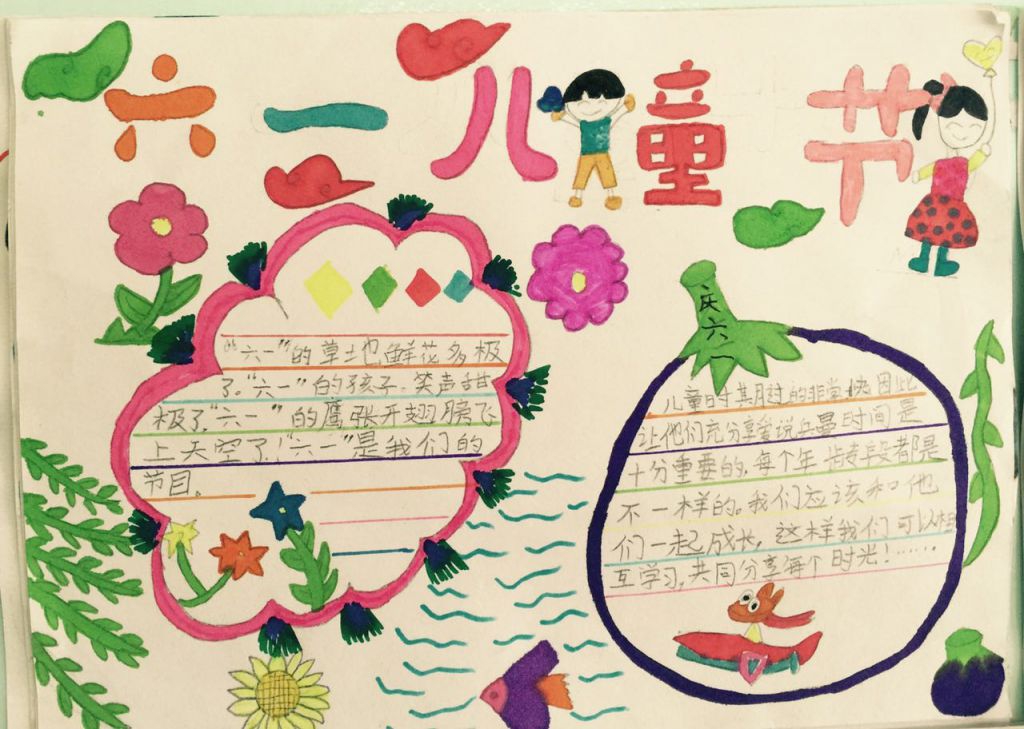 六一儿童节
“六一”的草地鲜花多极
了。“六一”的孩子.笑声甜
极了.“六一”的鹰张开翅膀飞
上天空了!“六一”是我们的
节目。
庆六一
儿童时其月过的非常快因此
让他们充分享爱说
时间是
十分重要的.每个年
段都是
不一样的。我们应该和他
们一起成长,这样我们可以相
互学习,共同分享每个时光!……